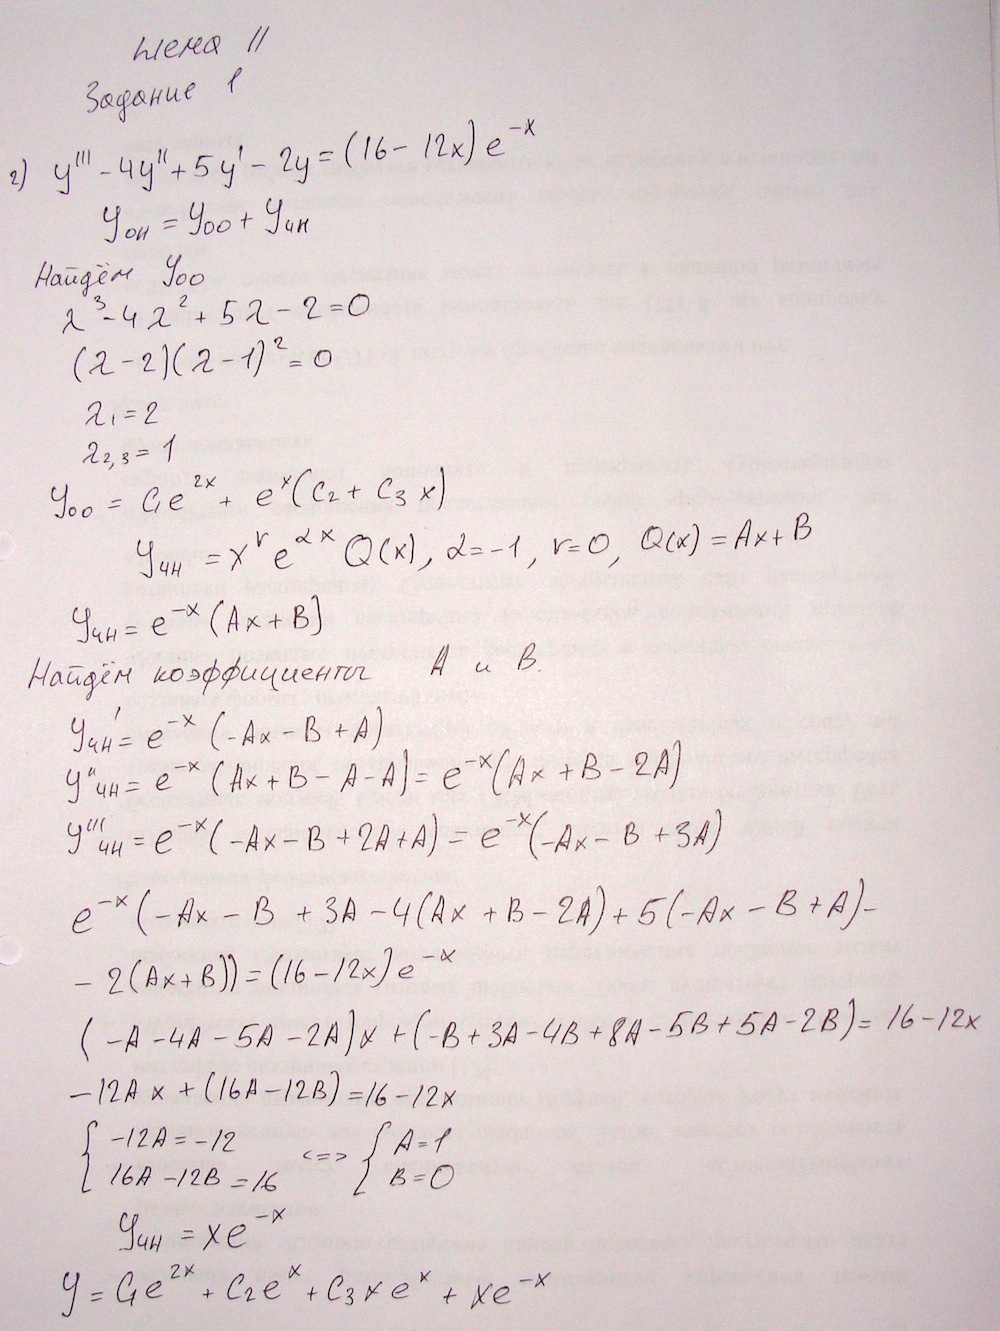 Тема 11
Задание 1
г) y''' - 4y'' + 5y' - 2y = (16 - 12x) e^{-x}
y_{он} = y_{оо} + y_{чн}
Найдём y_{оо}
λ^3 - 4λ^2 + 5λ - 2 = 0
(λ - 2)(λ - 1)^2 = 0
λ_1 = 2
λ_{2,3} = 1
y_{оо} = C_1e^{2x} + e^x(C_2 + C_3 x)
y_{чн} = x^r e^{αx} Q(x), α = -1, r = 0, Q(x) = Ax + B
y_{чн} = e^{-x} (Ax + B)
Найдём коэффициенты A и B.
y'_{чн} = e^{-x} (-Ax - B + A)
y''_{чн} = e^{-x} (Ax + B - A - A) = e^{-x}(Ax + B - 2A)
y'''_{чн} = e^{-x} (-Ax - B + 2A + A) = e^{-x}(-Ax - B + 3A)
e^{-x} (-Ax - B + 3A - 4(Ax + B - 2A) + 5(-Ax - B + A) -
- 2(Ax + B)) = (16 - 12x) e^{-x}
(-A - 4A - 5A - 2A)x + (-B + 3A - 4B + 8A - 5B + 5A - 2B) = 16 - 12x
-12Ax + (16A - 12B) = 16 - 12x
{ -12A = -12 <=> { A = 1
16A - 12B = 16 B = 0
y_{чн} = xe^{-x}
y = C_1e^{2x} + C_2e^x + C_3xe^x + xe^{-x}